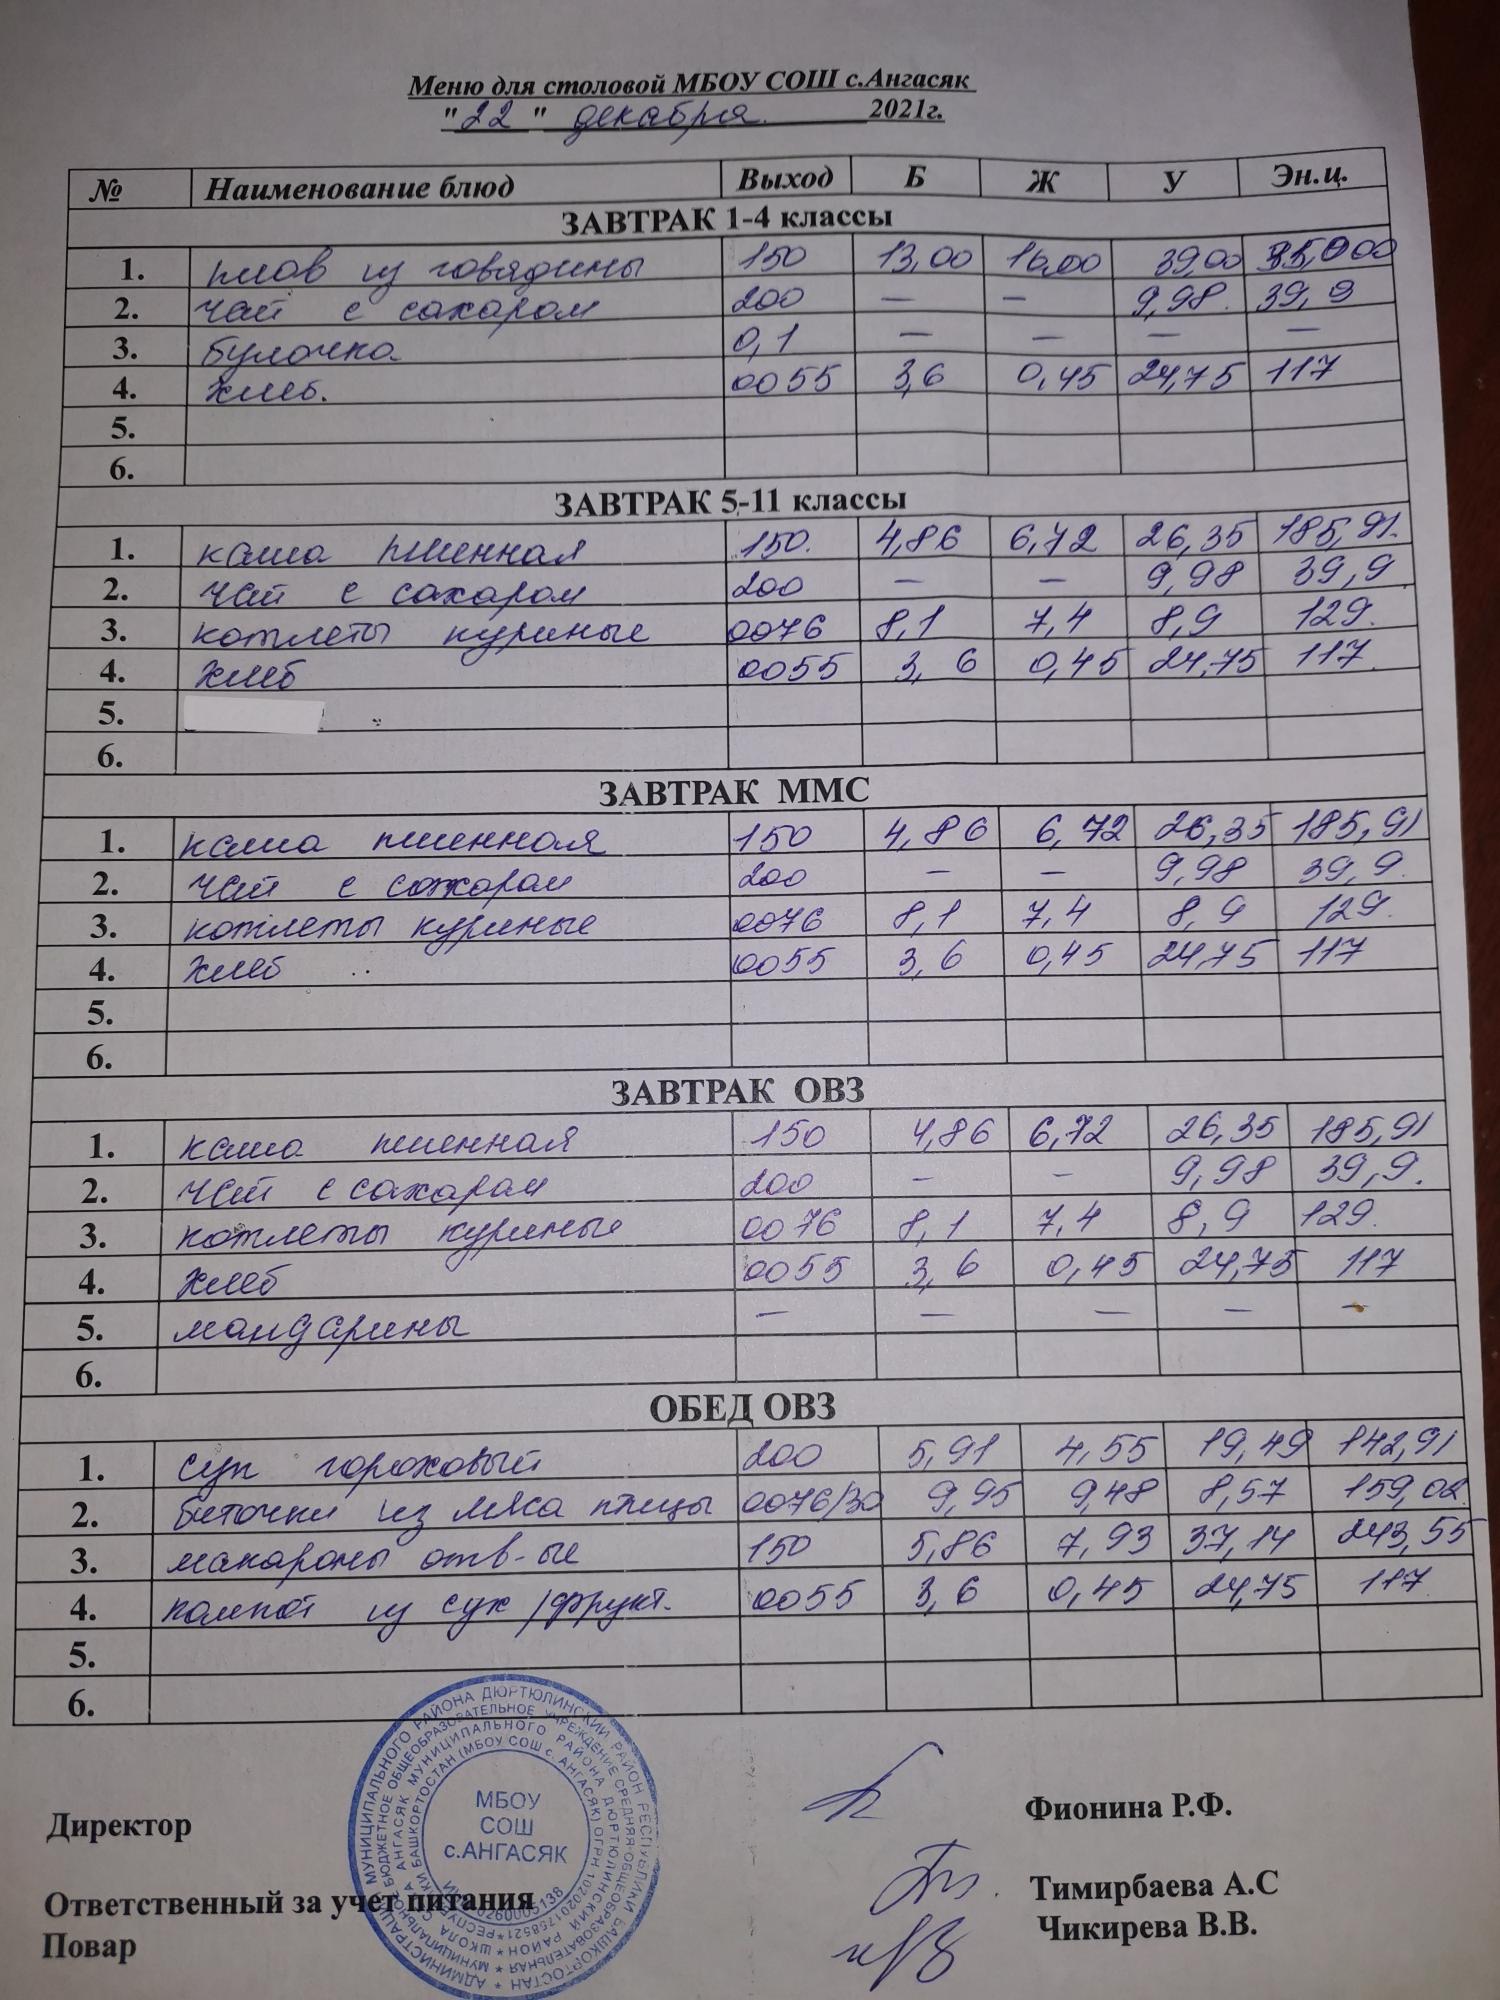 Меню для столовой МБОУ СОШ с.Ангасяк
"22" декабря 2021г.
№ Наименование блюд Выход Б Ж У Эн.ц.
ЗАВТРАК 1-4 классы
1. плов из говядины 150 13,00 16,00 39,00
2. чай с сахаром 200 — — 9,98 39,9
3. булочка 0,1 — — — —
4. хлеб. 0055 3,6 0,45 24,75 117
5.
6.
ЗАВТРАК 5-11 классы
1. каша пшенная 150. 4,86 6,72 26,35 185,91.
2. чай с сахаром 200 — — 9,98 39,9
3. котлеты куриные 0076 8,1 7,4 8,9 129.
4. хлеб 0055 3,6 0,45 24,75 117
5.
6.
ЗАВТРАК ММС
1. каша пшенная 150 4,86 6,72 26,35 185,91
2. чай с сахаром 200 — — 9,98 39,9.
3. котлеты куриные 0076 8,1 7,4 8,9 129.
4. хлеб 0055 3,6 0,45 24,75 117
5.
6.
ЗАВТРАК ОВЗ
1. каша пшенная 150 4,86 6,72 26,35 185,91
2. чай с сахаром 200 — — 9,98 39,9.
3. котлеты куриные 0076 8,1 7,4 8,9 129.
4. хлеб 0055 3,6 0,45 24,75 117
5. мандарины — — — — —
6.
ОБЕД ОВЗ
1. суп гороховый 200 5,91 4,55 19,49 142,91
2. биточки из мяса птицы 0076/30 9,95 9,48 8,57 159,02
3. макароны отв-ые 150 5,86 7,93 37,14 243,55
4. компот из сух/фрукт. 0055 3,6 0,45 24,75 117
5.
6.
МБОУ
СОШ
с.АНГАСЯК
Директор Фионина Р.Ф.
Ответственный за учет питания Тимирбаева А.С
Повар Чикирева В.В.